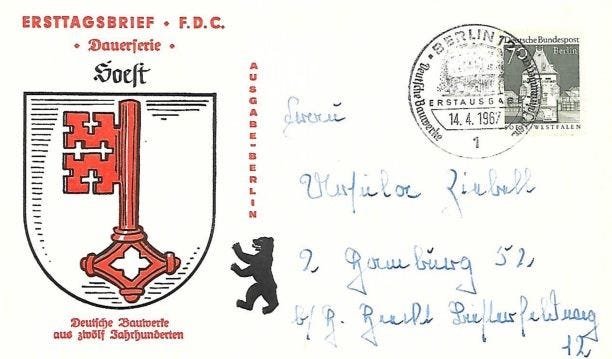 ERSTTAGSBRIEF • F.D.C.
• Dauerserie •
Soest
AUSGABE-BERLIN
Deutsche Bauwerke
aus zwölf Jahrhunderten
• BERLIN 12 •
ERSTAUSGABE
14. 4. 1967
1
Deutsche Bauwerke
70 Deutsche Bundespost
Berlin
SOEST/WESTFALEN
Ursula Ziebell
2 Hamburg 52
12